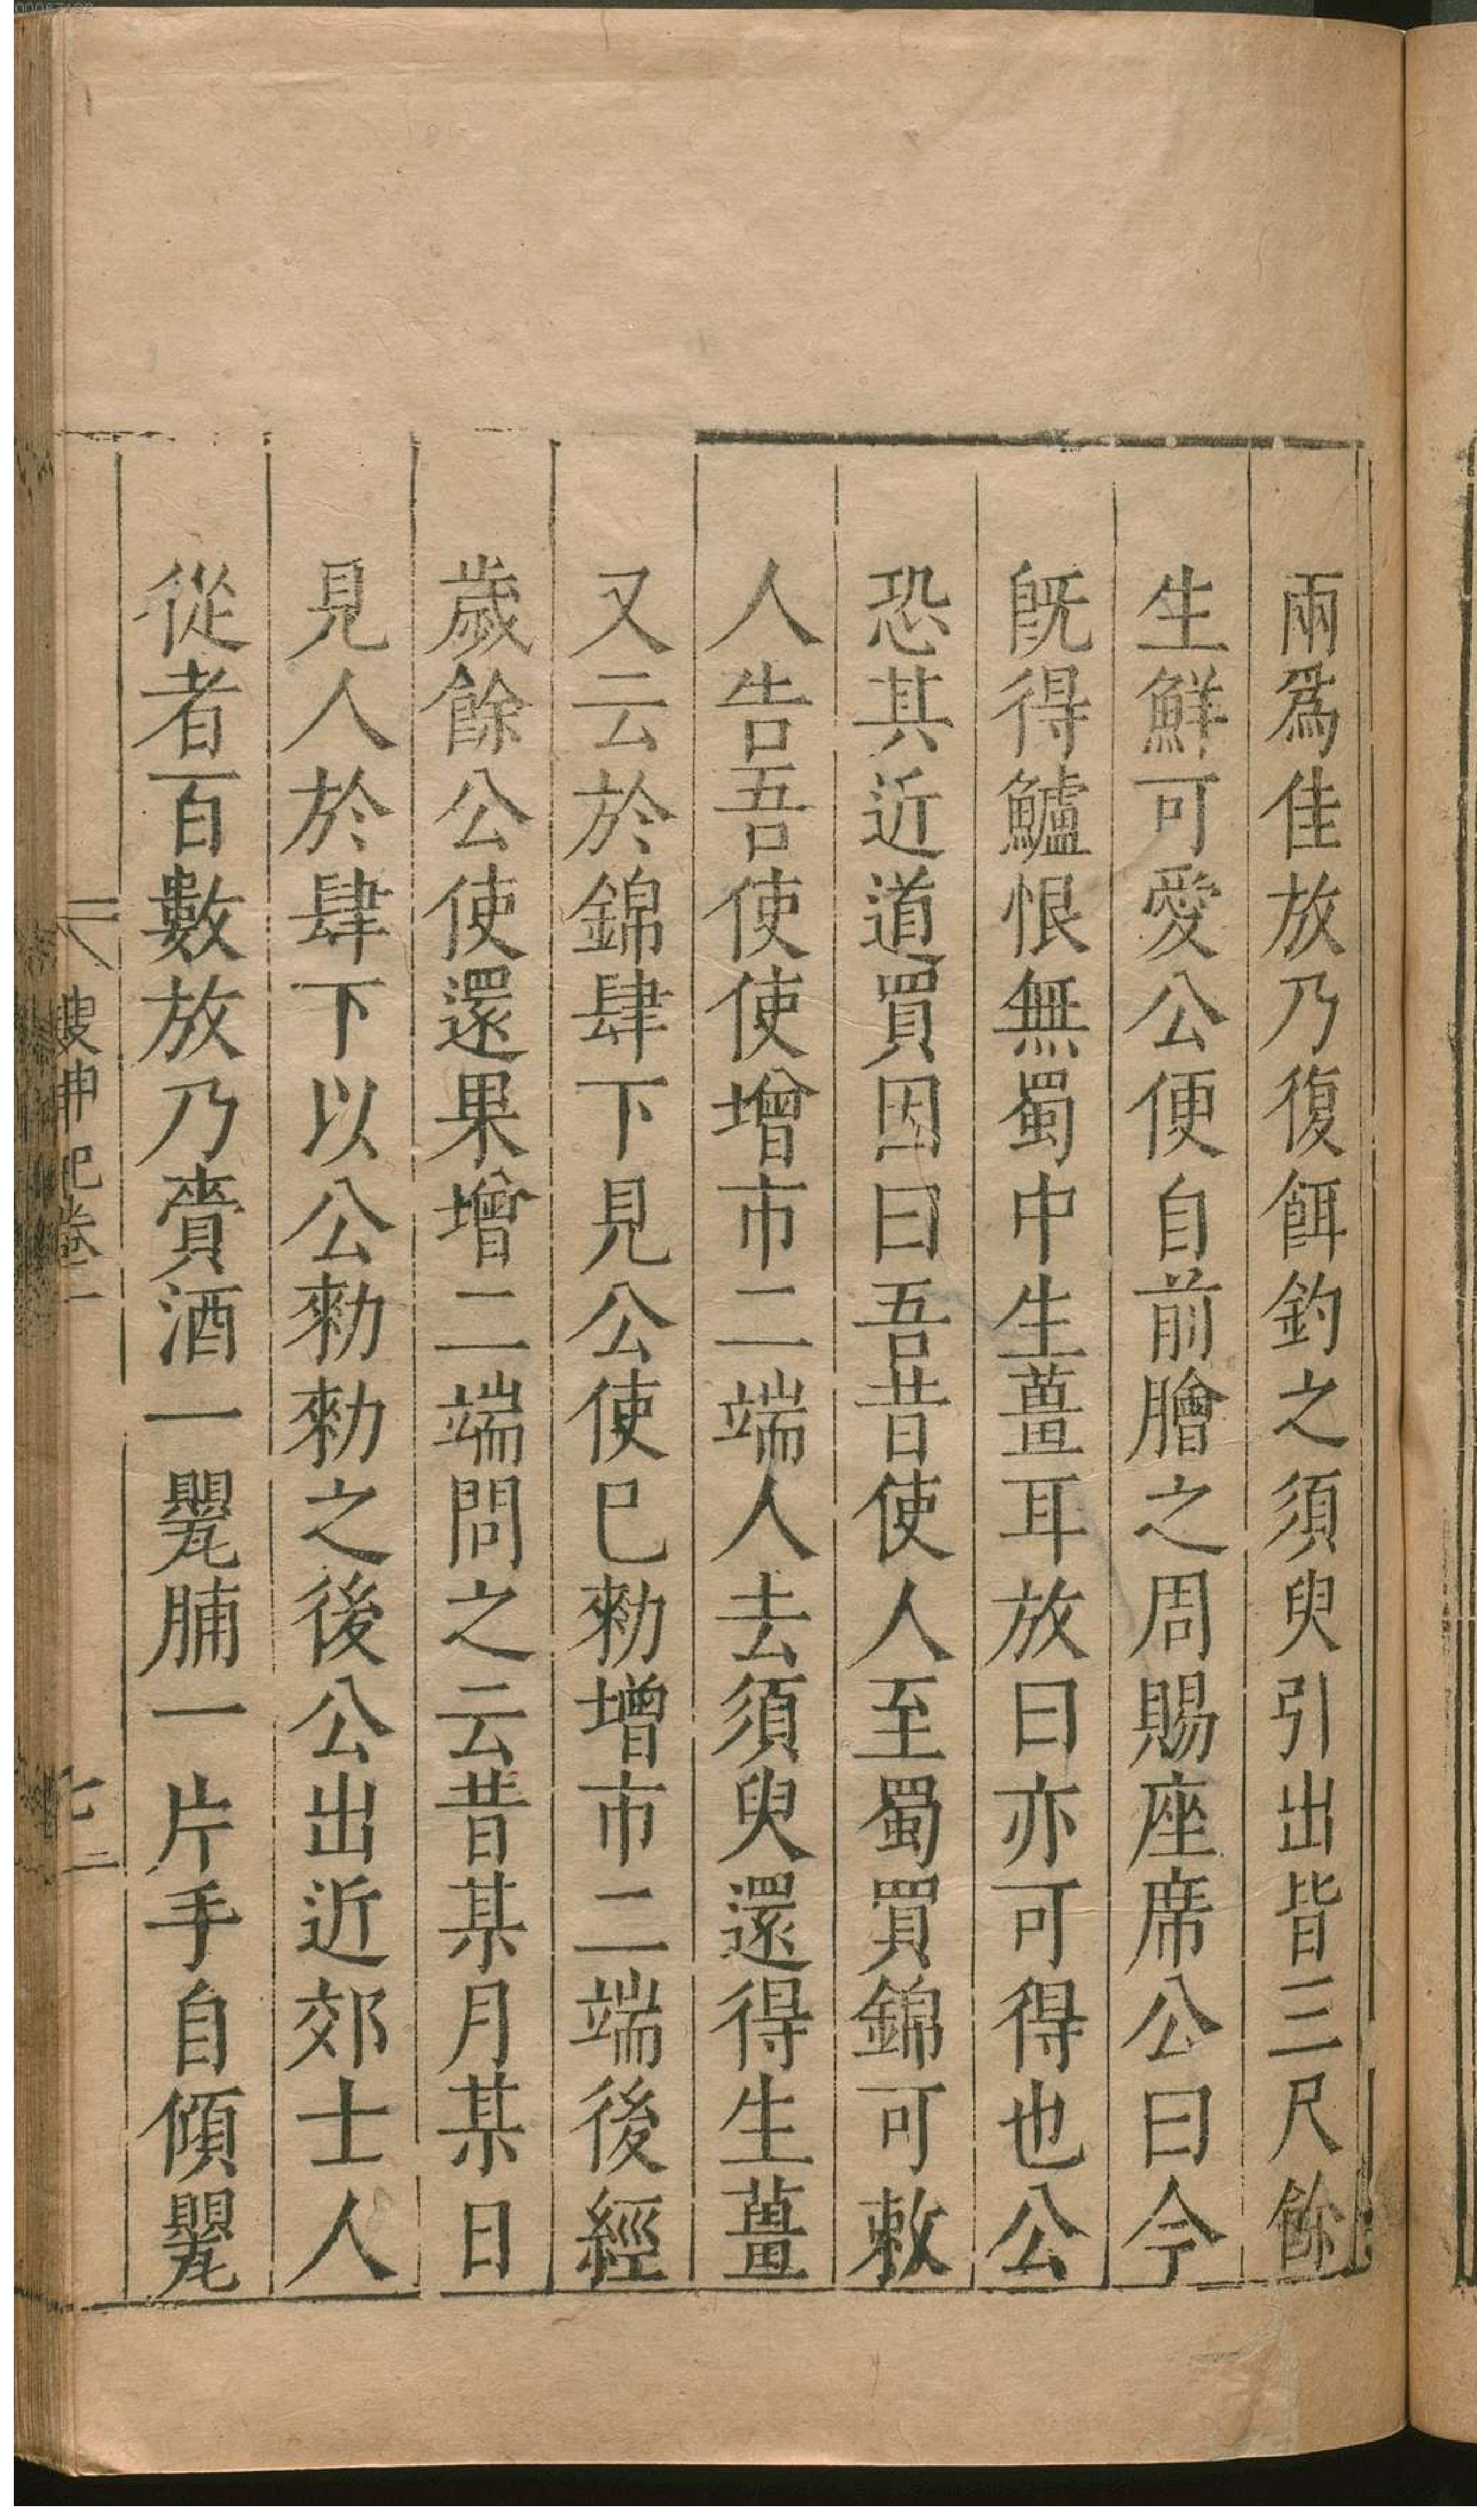 兩爲佳放乃復餌釣之須臾引出皆三尺餘
生鮮可愛公便自前膾之周賜座席公曰今
旣得鱸恨無蜀中生薑耳放曰亦可得也公
恐其近道買因曰吾昔使人至蜀買錦可敕
人告吾使使增市二端人去須臾還得生薑
又云於錦肆下見公使巳勑增市二端後經
歲餘公使還果增二端問之云昔某月某日
見人於肆下以公勑勑之後公出近郊士人
從者百數放乃賷酒一甖脯一片手自傾甖
搜神記卷一
七